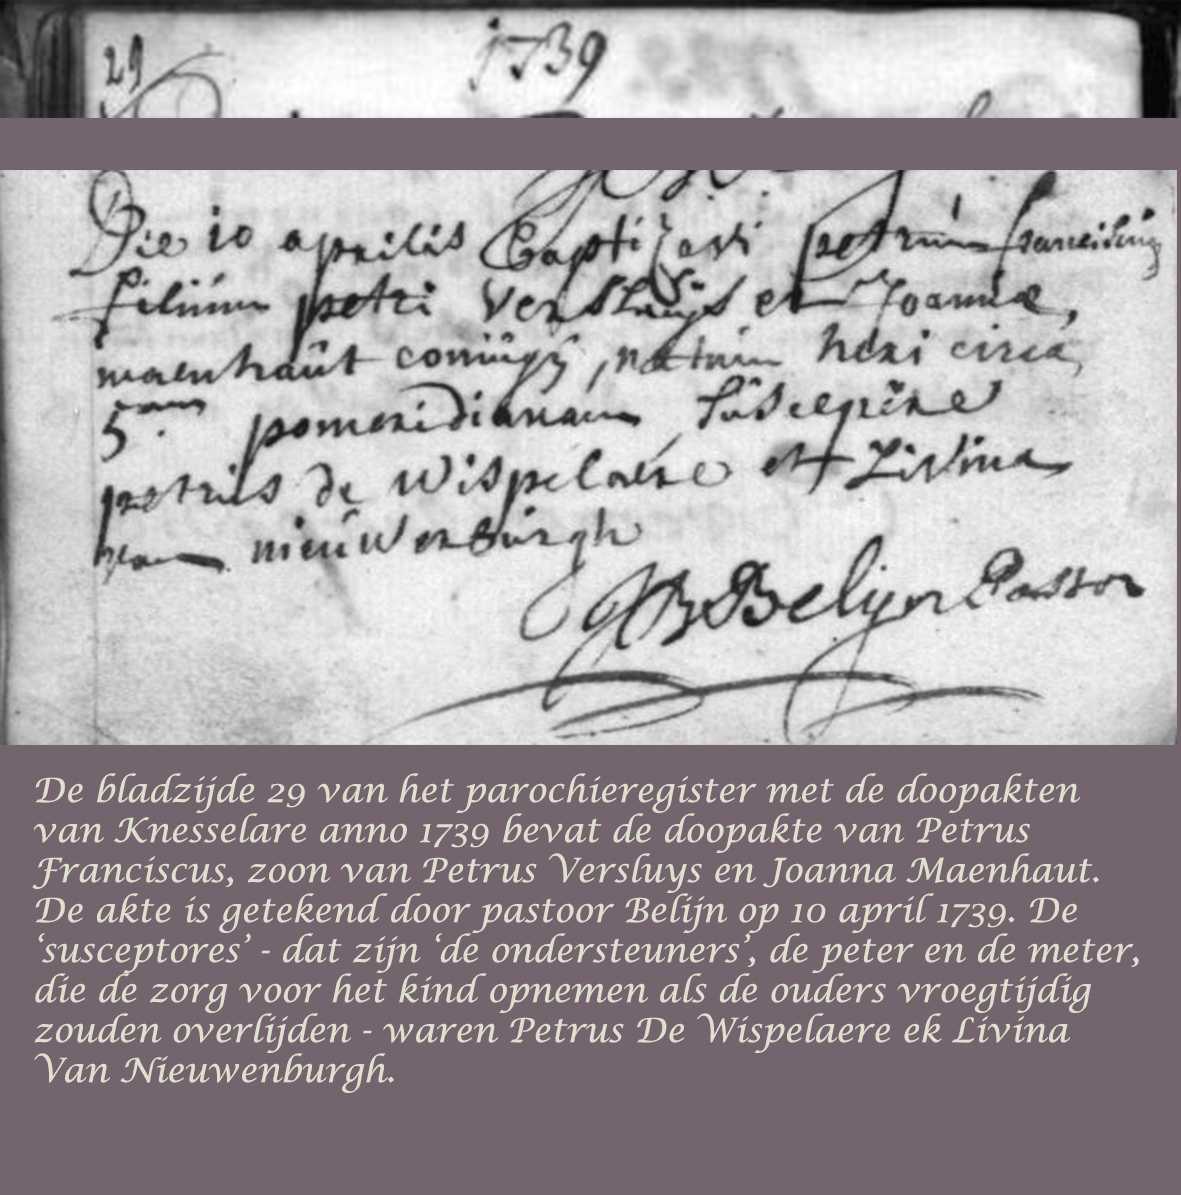 29
1739
Die 10 aprilis Baptizavi petrum franciscum
filium petri Versluys et Joannæ
maenhaut coniugū, natum heri circa
5.am pomeridianam suscepêre
petrus de wispelaere et Livina
van nieuwenburgh
JB Belijn Pastor
De bladzijde 29 van het parochieregister met de doopakten
van Knesselare anno 1739 bevat de doopakte van Petrus
Franciscus, zoon van Petrus Versluys en Joanna Maenhaut.
De akte is getekend door pastoor Belijn op 10 april 1739. De
‘susceptores’ - dat zijn ‘de ondersteuners’, de peter en de meter,
die de zorg voor het kind opnemen als de ouders vroegtijdig
zouden overlijden - waren Petrus De Wispelaere ek Livina
Van Nieuwenburgh.